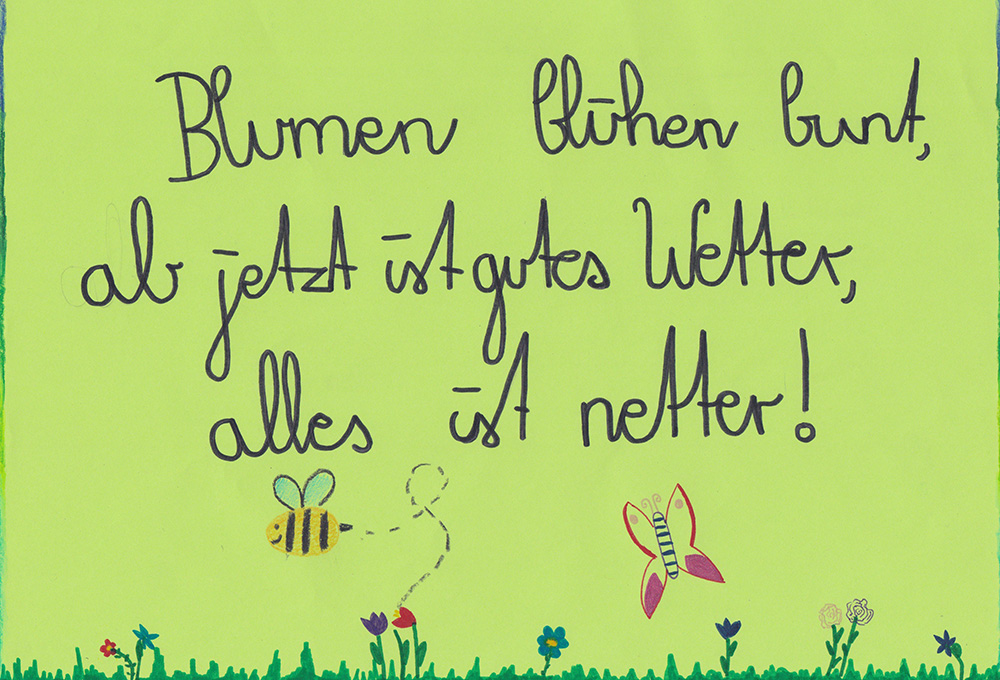 Blumen blühen bunt,
ab jetzt ist gutes Wetter,
alles ist netter!